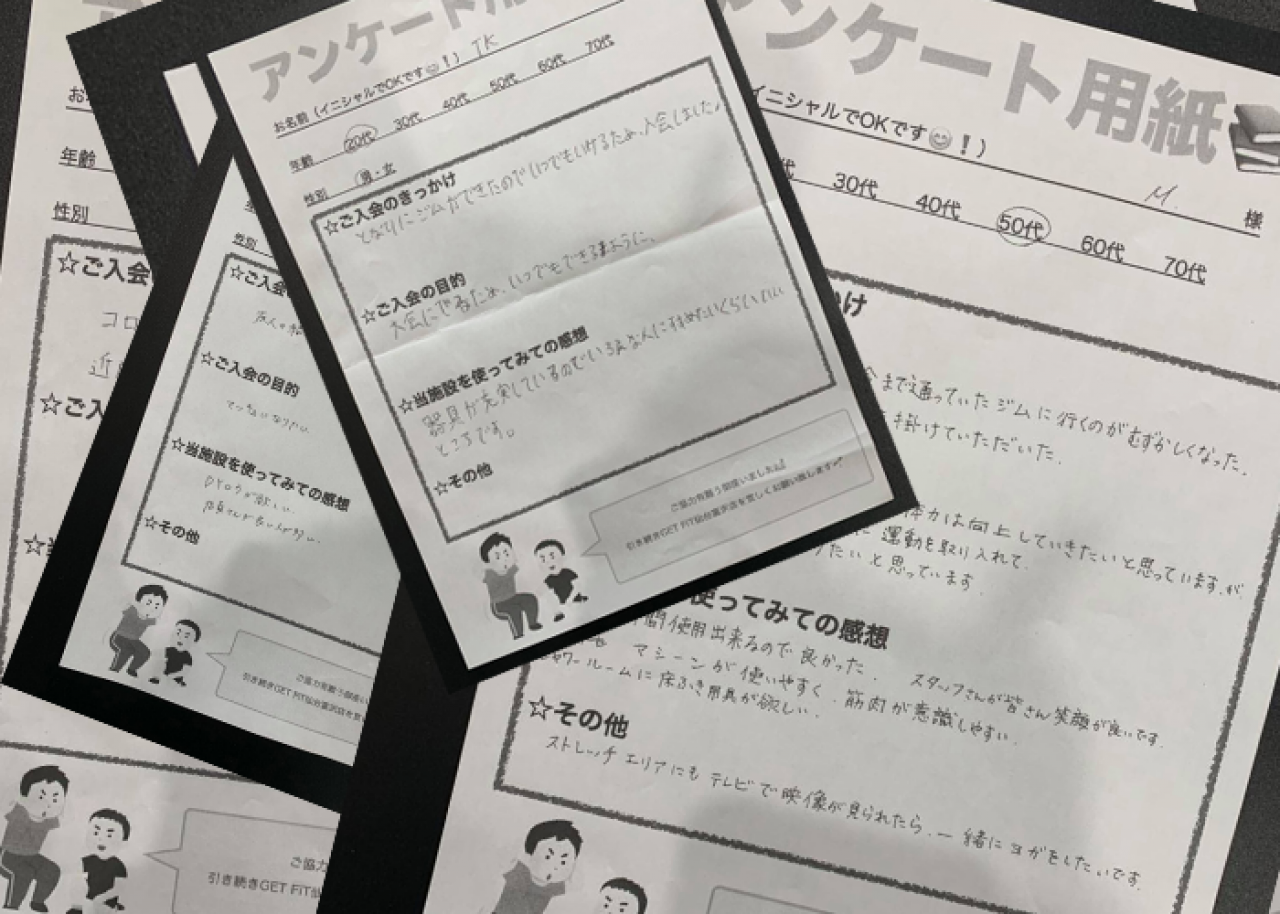 アンケート用
お名前（イニシャルでOKです😊！） TK
年齢 20代 30代 40代 50代 60代 70代
性別 男・女
☆ご入会のきっかけ
となりにジムができたのでいつでもいけるため、入会しました。
☆ご入会の目的
大会にでるため、いつでもできるように、
☆当施設を使ってみての感想
器具が充実しているのでいろんな人にすすめたいくらいいい
ところです。
☆その他
ご協力有難う御座いました
引き続きGET FIT仙台富沢店を宜しくお願い致します
ンケート用紙
イニシャルでOKです😊！） M. 様
代 30代 40代 50代 60代 70代
っかけ
まで通っていたジムに行くのがむずかしくなった。
掛けていただいた.
体力は向上していきたいと思っていますが、
運動を取り入れて
りたいと思っています.
使ってみての感想
間使用出来るので良かった. スタッフさんが皆さん笑顔が良いです.
マシーンが使いやすく、筋肉が意識しやすい.
シャワールームに床ふき用具が欲しい.
☆その他
ストレッチエリアにもテレビで映像が見られたら、一緒にヨガをしたいです.
性別
☆ご入会
☆ご入会の目的
でっかくなりたい
☆当施設を使ってみての感想
☆その他
ご協力有難う御座い
引き続きGET FIT仙台富沢店を宜
お
年齢
性別
☆ご入会
コロ
近
☆ご入
☆
ご協力
引き続きGET FIT仙